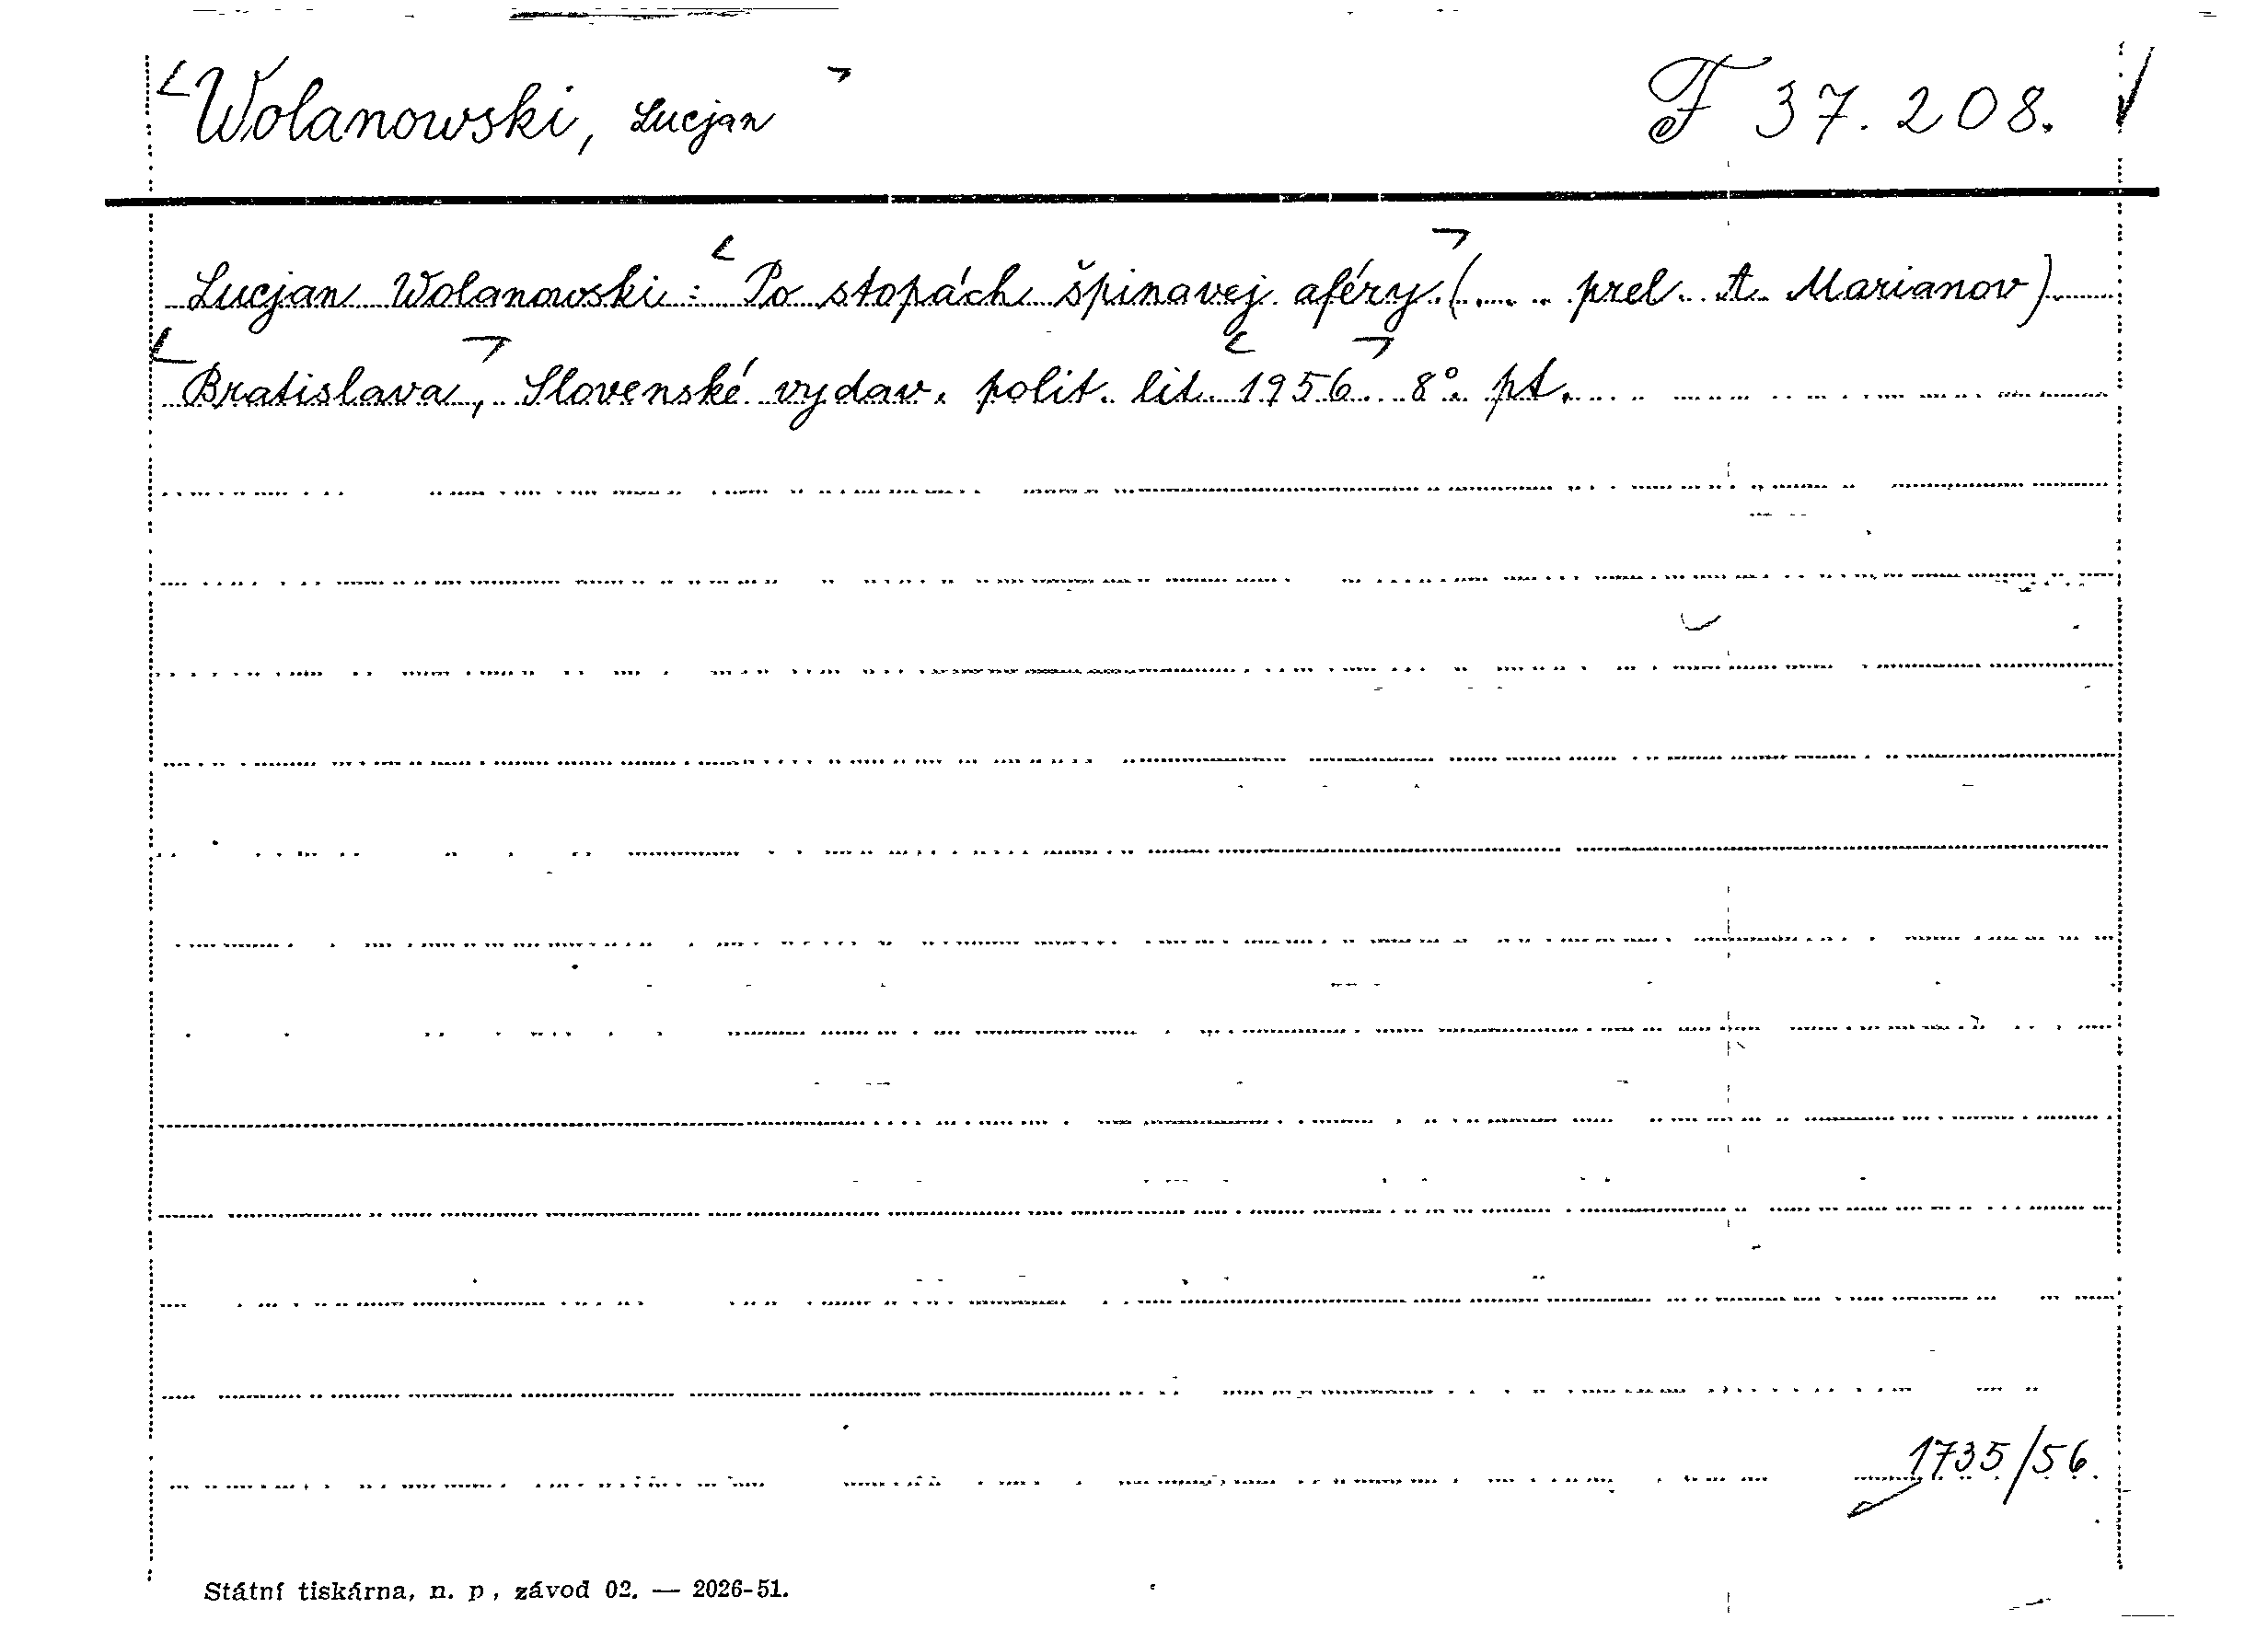 Wolanowski, Lucjan F 37.208.
Lucjan Wolanowski: Po stopách špinavej aféry. (... prel. A. Marianov)
Bratislava, Slovenské vydav. polit. lit. 1956 8°. pt.
1735/56.
Státní tiskárna, n. p, závod 02. — 2026-51.